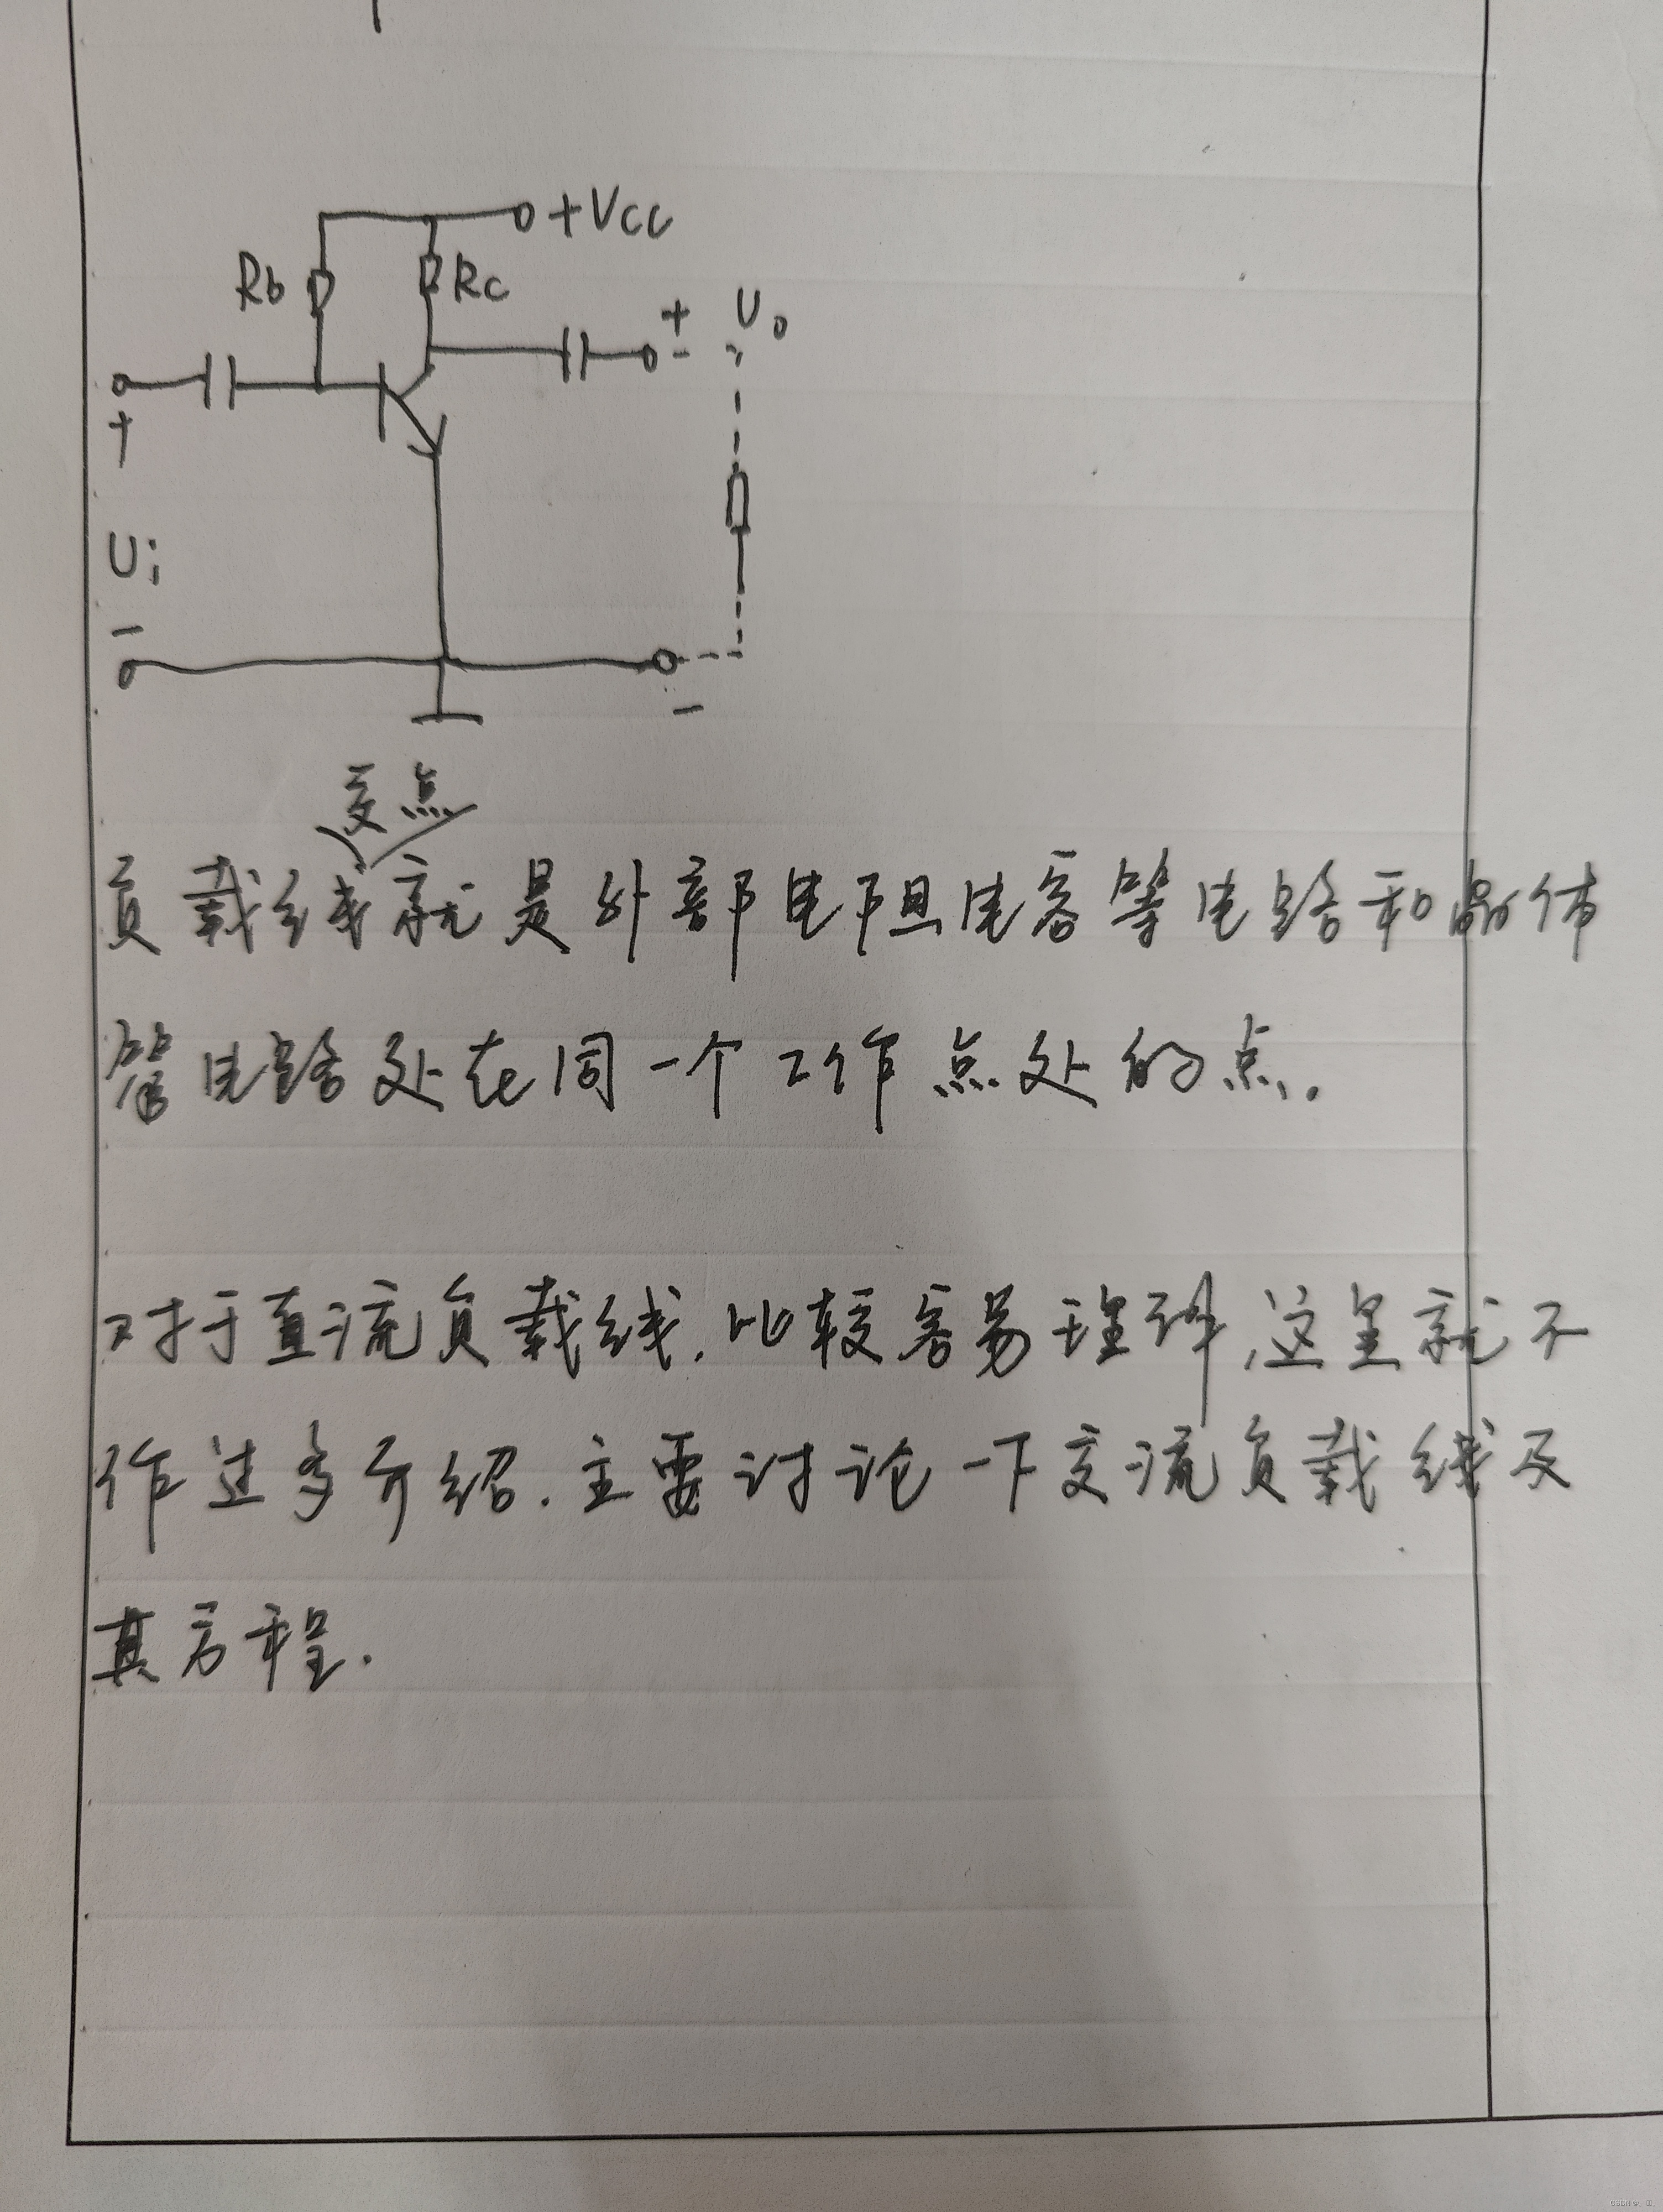 +Vcc
Rb
Rc
+ Uo
+
Ui
-
-
交点
负载线就是外部电阻电容等电路和晶体
管电路处在同一个工作点处的点.
对于直流负载线.比较容易理解,这里就不
作过多介绍.主要讨论一下交流负载线及
其方程.